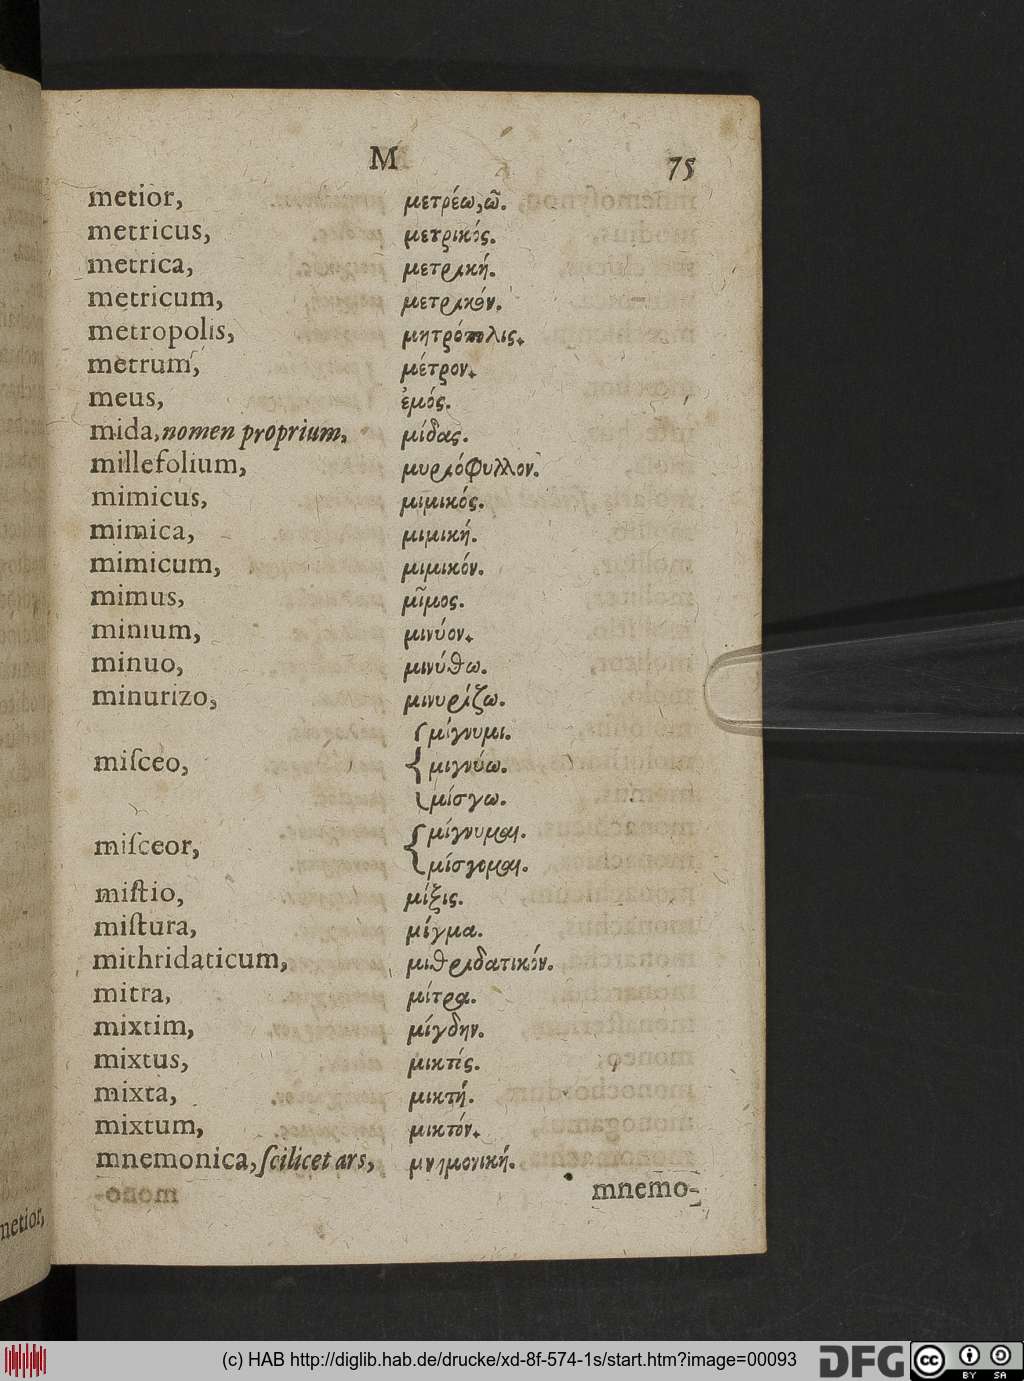 M 75
metior, μετρέω,ῶ.
metricus, μετρικός.
metrica, μετρική.
metricum, μετρικόν.
metropolis, μητρόπολις.
metrum, μέτρον.
meus, ἐμός.
mida, nomen proprium, μίδας.
millefolium, μυριόφυλλον.
mimicus, μιμικός.
mimica, μιμική.
mimicum, μιμικόν.
mimus, μῖμος.
minium, μινύον.
minuo, μινύθω.
minurizo, μινυρίζω.
μίγνυμι.
miſceo, μιγνύω.
μίσγω.
μίγνυμαι.
miſceor,
μίσγομαι.
miſtio, μίξις.
miſtura, μίγμα.
mithridaticum, μιθριδατικόν.
mitra, μίτρα.
mixtim, μίγδην.
mixtus, μικτίς.
mixta, μικτή.
mixtum, μικτόν.
mnemonica, ſcilicet ars, μνημονική.
mnemo-
netior,
(c) HAB http://diglib.hab.de/drucke/xd-8f-574-1s/start.htm?image=00093
DFG cc BY SA